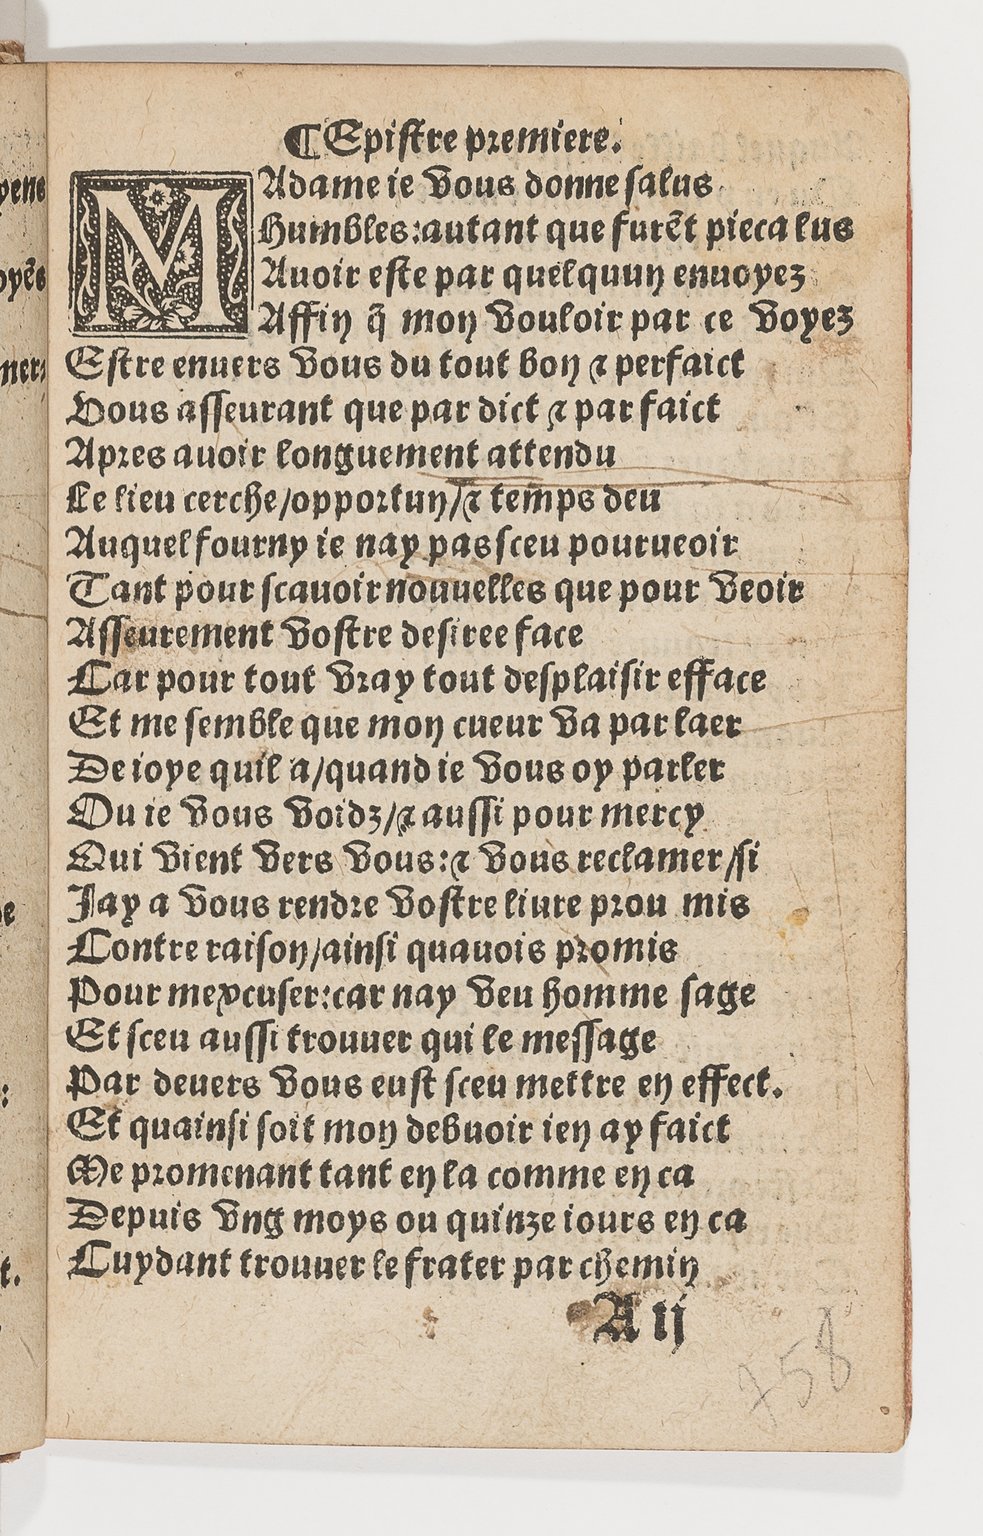 ¶ Epistre premiere.
MAdame ie vous donne salus
Humbles: autant que furẽt pieca lus
Auoir este par quelquun enuoyez
Affin q̃ mon vouloir par ce voyez
Estre enuers vous du tout bon ⁊ perfaict
Vous asseurant que par dict ⁊ par faict
Apres auoir longuement attendu
Le lieu cerche/opportun/⁊ temps deu
Auquel fourny ie nay pas sceu pourueoir
Tant pour scauoir nouuelles que pour veoir
Asseurement vostre desiree face
Car pour tout vray tout desplaisir efface
Et me semble que mon cueur va par laer
De ioye quil a/quand ie vous oy parler
Ou ie vous voidz/⁊ aussi pour mercy
Qui vient vers vous: ⁊ vous reclamer/si
Jay a vous rendre vostre liure prou mis
Contre raison/ainsi quauois promis
Pour mexcuser: car nay veu homme sage
Et sceu aussi trouuer qui le message
Par deuers vous eust sceu mettre en effect.
Et quainsi soit mon debuoir ien ay faict
Me promenant tant en la comme en ca
Depuis vng moys ou quinze iours en ca
Cuydant trouuer le frater par chemin
A ij
758